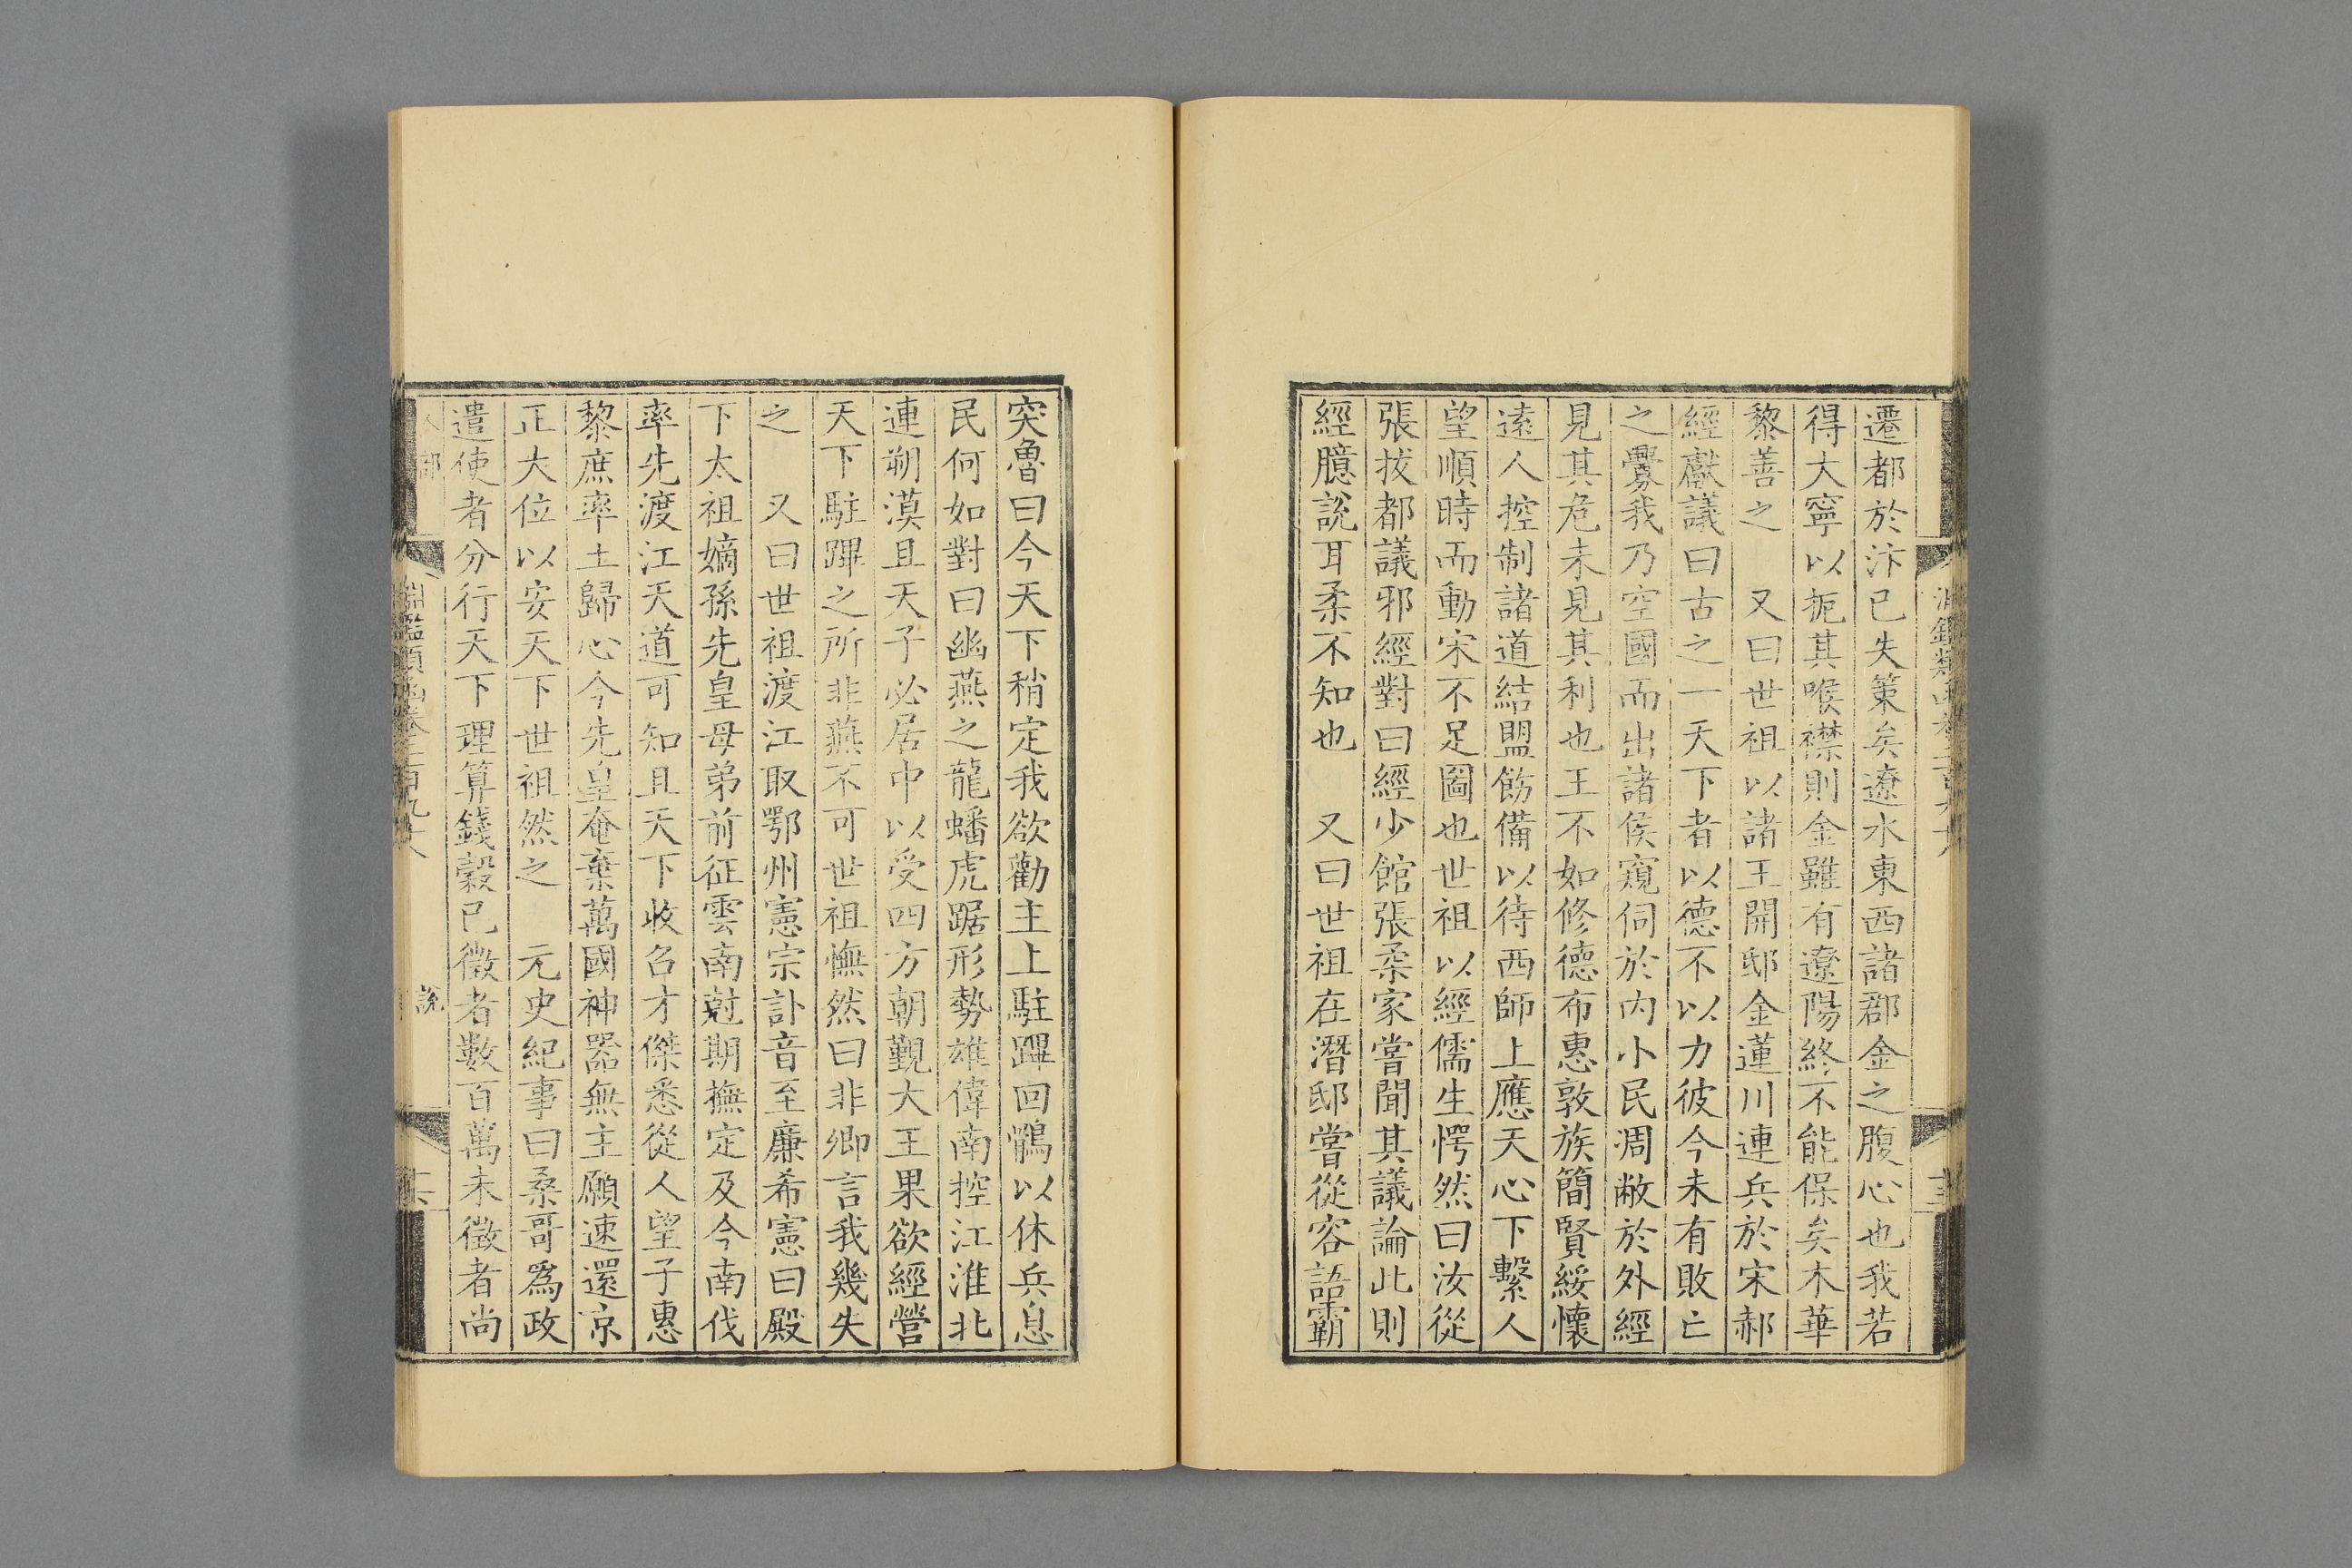 遷都於汴已失策矣遼水東西諸郡金之腹心也我若
得大寧以扼其喉襟則金雖有遼陽終不能保矣木華
黎善之　又曰世祖以諸王開邸金蓮川連兵於宋郝
經獻議曰古之一天下者以德不以力彼今未有敗亡
之釁我乃空國而出諸侯窺伺於内小民凋敝於外經
見其危未見其利也王不如修德布惠敦族簡賢綏懷
遠人控制諸道結盟飭備以待西師上應天心下繫人
望順時而動宋不足圖也世祖以經儒生愕然曰汝從
張拔都議邪經對曰經少館張柔家嘗聞其議論此則
經臆說耳柔不知也　又曰世祖在潛邸嘗從容語霸
突魯曰今天下稍定我欲勸主上駐蹕回鶻以休兵息
民何如對曰幽燕之龍蟠虎踞形勢雄偉南控江淮北
連朔漠且天子必居中以受四方朝覲大王果欲經營
天下駐蹕之所非燕不可世祖憮然曰非卿言我幾失
之　又曰世祖渡江取鄂州憲宗訃音至廉希憲曰殿
下太祖嫡孫先皇母弟前征雲南尅期撫定及今南伐
率先渡江天道可知且天下收召才傑悉從人望子惠
黎庶率土歸心今先皇奄棄萬國神器無主願速還京
正大位以安天下世祖然之　元史紀事曰桑哥爲政
遣使者分行天下理算錢穀已徵者數百萬未徵者尚
淵鑑類函卷三百九十八
說